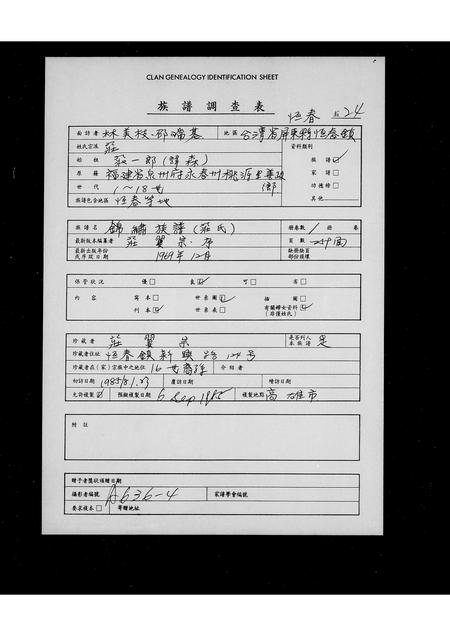 CLAN GENEALOGY IDENTIFICATION SHEET
族譜調查表
恆春 24
面訪者 林美枝、邵瑞基 地區 台灣省屏東縣恆春鎮
姓氏宗派 莊 資料類別
始祖 莊一郎(諱森) 族譜 ☑
原籍 福建省泉州府永春州桃源里 家譜 □
世代 1~18世 功德榜 □
族譜包含地區 恆春等地 其他 □
族譜名 錦繡族譜(莊氏) 冊卷數 1 冊 卷
最新版本編纂者 莊 頁數 面
最新出版年份 缺冊缺頁
或序跋日期 1969年12月 部份損壞
保管狀況 優 □ 良 ☑ 可 □ 劣 □
內容 寫本 □ 世系圖 ☑ 插圖 □
刊本 ☑ 世系表 □ 有關婦女資料 ☑
(非僅姓氏)
珍藏者 莊 是否列入
本族譜 是
珍藏者住址 恆春鎮新興路124號
珍藏者在(家)宗族中之地位 16世裔孫 介紹者
初訪日期 1985.8.23 覆訪日期 續訪日期
允許複製 ☑ 預擬複製日期 6 Sep 1985 複製地點 高雄市
附註
贈予者獎狀填贈日期
攝影者編號 A636-4 家譜學會編號
要求複本 □ 寄贈地址